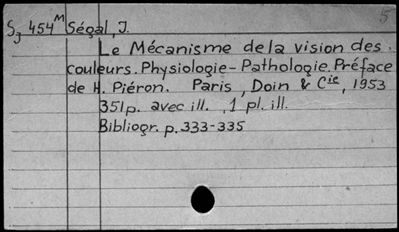 5
Sj 454M Ségal, J.
Le Mécanisme de la vision des
couleurs. Physiologie - Pathologie. Préface
de H. Piéron. Paris, Doin & Cie, 1953
351p. avec ill., 1 pl. ill.
Bibliogr. p. 333-335